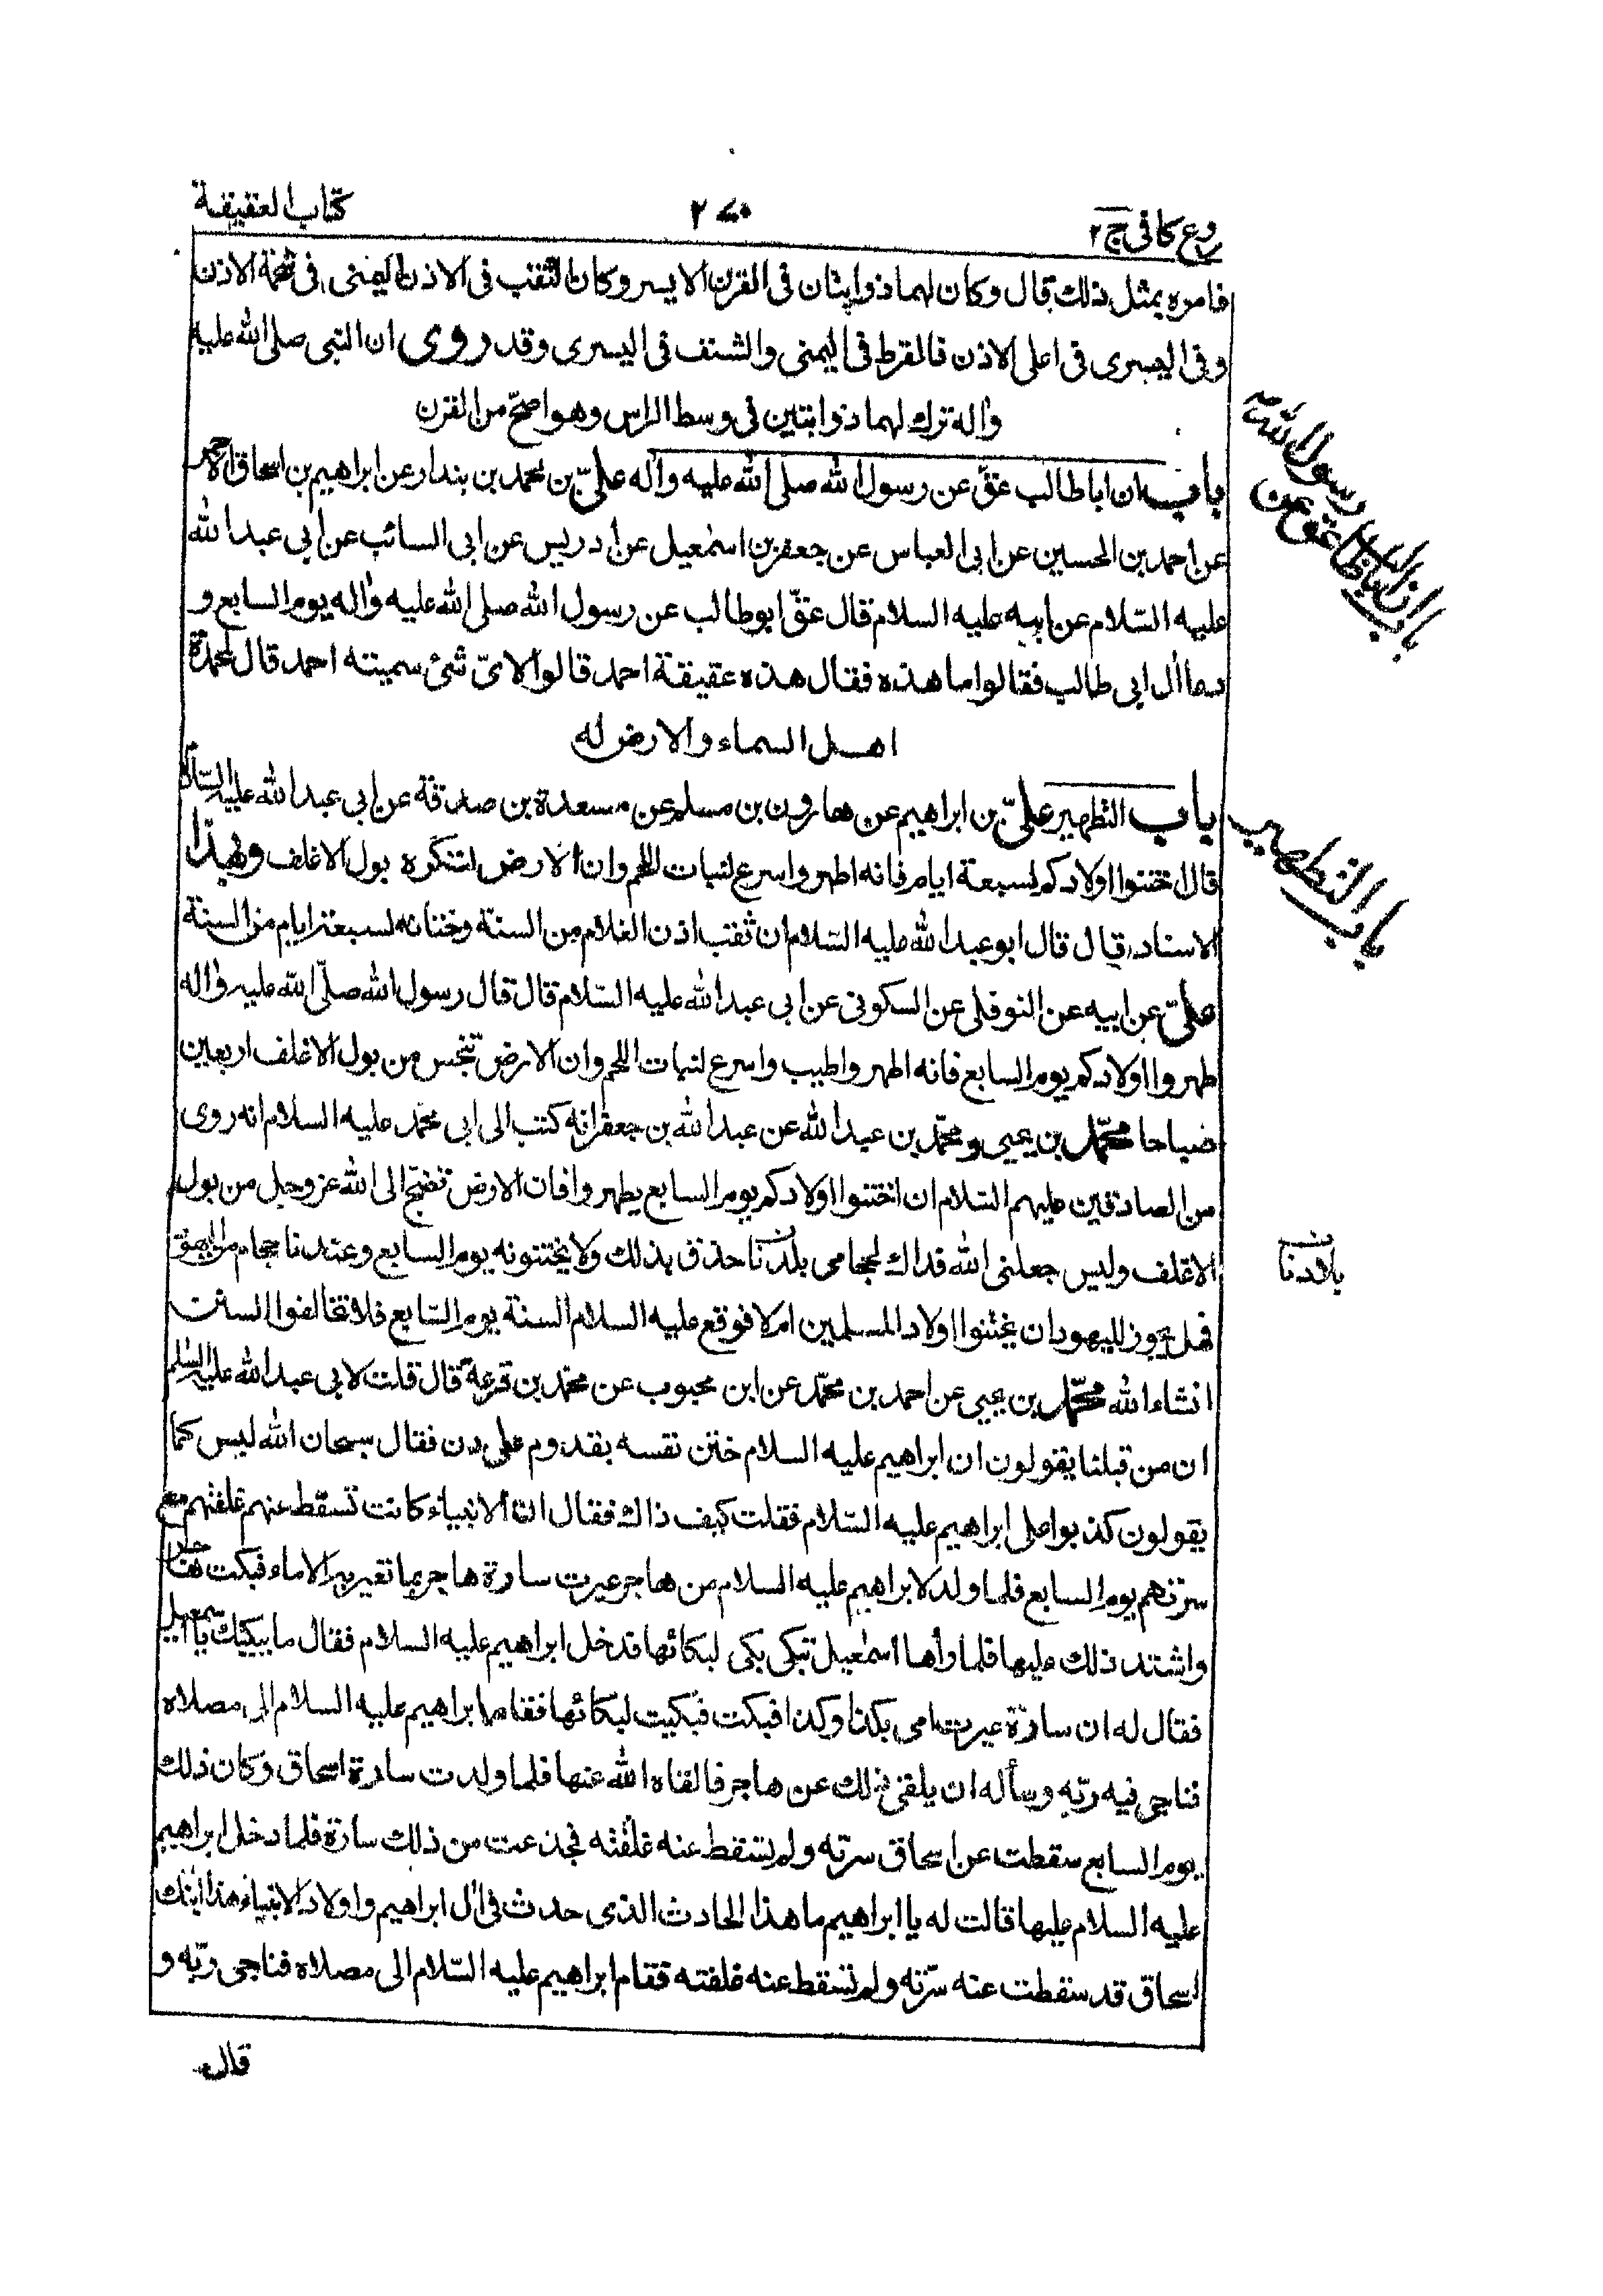 كتاب العقيقة
فروع كافى ج ٢
فامره بمثل ذلك قال وكان لهما ذوابتان فى القرن الايسر وكان الثقب فى الاذن اليمنى فى شحمة الاذن
وفى اليسرى فى اعلى الاذن فالقرط فى اليمنى والشنف فى اليسرى وقد روى ان النبى صلى الله عليه
واله ترك لهما ذوابتين فى وسط الراس وهو اصح من القرن
باب ان اباطالب عق عن رسول الله صلى الله عليه واله على بن محمد بن بندار عن ابراهيم بن اسحاق الاحمر
عن احمد بن الحسين عن ابى العباس عن جعفر بن اسمعيل عن ادريس عن ابى السائب عن ابى عبد الله
عليه السلام عن ابيه عليه السلام قال عق ابو طالب عن رسول الله صلى الله عليه واله يوم السابع و
دعا ال ابى طالب فقالوا ما هذه فقال هذه عقيقة احمد قالوا لاى شئ سميته احمد قال لمحمدة
اهل السماء والارض له
باب التطهير على بن ابراهيم عن هارون بن مسلم عن مسعدة بن صدقة عن ابى عبد الله عليه السلام
قال اختنوا اولادكم لسبعة ايام فانه اطهر واسرع لنبات اللحم وان الارض لتكره بول الاغلف وبهذا
الاسناد قال قال ابو عبد الله عليه السلام ان ثقب اذن الغلام من السنة وختانه لسبعة ايام من السنة
على عن ابيه عن النوفلى عن السكونى عن ابى عبد الله عليه السلام قال قال رسول الله صلى الله عليه واله
طهروا اولادكم يوم السابع فانه اطهر واطيب واسرع لنبات اللحم وان الارض تنجس من بول الاغلف اربعين
صباحا محمد بن يحيى ومحمد بن عبد الله عن عبد الله بن جعفر انه كتب الى ابى محمد عليه السلام انه روى
من الصادقين عليهم السلام ان اختنوا اولادكم يوم السابع يطهروا فان الارض تضج الى الله عز وجل من بول
الاغلف وليس جعلنى الله فداك لحجامى بلدنا حذق بذلك ولا يختنونه يوم السابع وعندنا حجام من اليهود
فهل يجوز لليهود ان يختنوا اولاد المسلمين ام لا فوقع عليه السلام السنة يوم السابع فلا تخالفوا السنن
انشاء الله محمد بن يحيى عن احمد بن محمد عن ابن محبوب عن محمد بن قزعة قال قلت لابى عبد الله عليه السلم
ان من قبلنا يقولون ان ابراهيم عليه السلام ختن نفسه بقدوم على دن فقال سبحان الله ليس كما
يقولون كذبوا على ابراهيم عليه السلام فقلت كيف ذاك فقال ان الانبياء كانت تسقط عنهم غلفتهم مع
سررهم يوم السابع فلما ولد لابراهيم عليه السلام من هاجر عيرت سارة هاجر بما تعير به الاماء فبكت هاجر
واشتد ذلك عليها فلما رأها اسمعيل تبكى بكى لبكائها فدخل ابراهيم عليه السلام فقال ما يبكيك يا اسمعيل
فقال له ان سارة عيرت امى بكذا وكذا فبكت فبكيت لبكائها فقام ابراهيم عليه السلام الى مصلاه
فناجى فيه ربه وسأله ان يلقى ذلك عن هاجر فالقاه الله عنها فلما ولدت سارة اسحاق وكان ذلك
يوم السابع سقطت عن اسحاق سرته ولم تسقط عنه غلفته فجزعت من ذلك سارة فلما دخل ابراهيم
عليه السلام عليها قالت له يا ابراهيم ما هذا الحادث الذى حدث فى ال ابراهيم واولاد الانبياء هذا ابنك
اسحاق قد سقطت عنه سرته ولم تسقط عنه غلفته فقام ابراهيم عليه السلام الى مصلاه فناجى ربه و
قال
باب ان اباطالب عق عن
رسول الله
باب التطهير
بلادنا